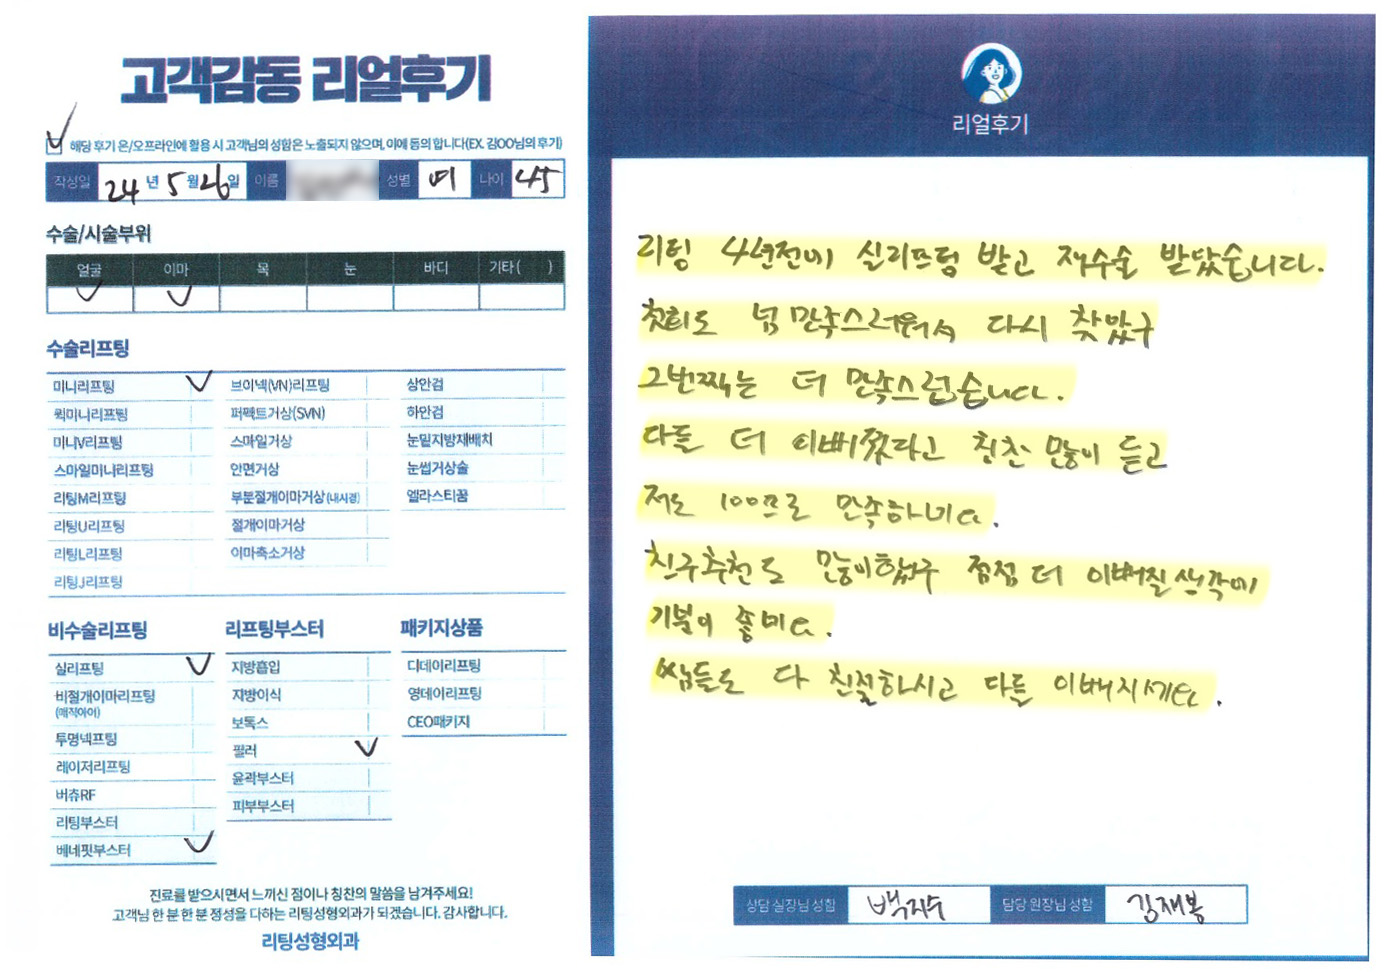 고객감동 리얼후기
해당 후기 온/오프라인에 활용 시 고객님의 성함은 노출되지 않으며, 이에 동의 합니다(EX. 김OO님의 후기)
작성일 24년 5월 26일 이름 성별 여 나이 45
수술/시술부위
얼굴 이마 목 눈 바디 기타( )
수술리프팅
미니리프팅 브이넥(VN)리프팅 상안검
퀵미니리프팅 퍼펙트거상(SVN) 하안검
미니V리프팅 스마일거상 눈밑지방재배치
스마일미니리프팅 안면거상 눈썹거상술
리팅M리프팅 부분절개이마거상(내시경) 엘라스티꿈
리팅U리프팅 절개이마거상
리팅L리프팅 이마축소거상
리팅J리프팅
비수술리프팅 리프팅부스터 패키지상품
실리프팅 지방흡입 디데이리프팅
비절개이마리프팅 지방이식 영데이리프팅
(매직아이)
투명넥프팅 보톡스 CEO패키지
레이저리프팅 필러
버츄RF 윤곽부스터
리팅부스터 피부부스터
베네핏부스터
진료를 받으시면서 느끼신 점이나 칭찬의 말씀을 남겨주세요!
고객님 한 분 한 분 정성을 다하는 리팅성형외과가 되겠습니다. 감사합니다.
리팅성형외과
리얼후기
리팅 4년전에 실리프팅 받고 재수술 받았습니다.
첫회도 넘 만족스러워서 다시 찾았구
그번째는 더 만족스럽습니다.
다들 더 이뻐졌다고 칭찬 많이 듣고
저도 100프로 만족하네요.
친구추천도 많이했구 점점 더 이뻐질 생각에
기분이 좋네요.
쌤들도 다 친절하시고 다들 이뻐지세요.
상담 실장님 성함 백지수 담당 원장님 성함 김재봉